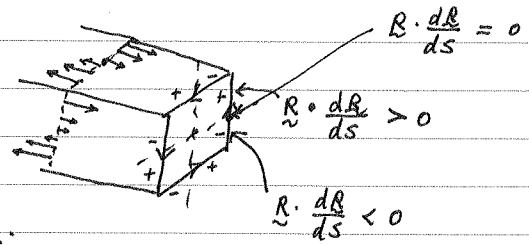 R · dR/ds = 0
R · dR/ds > 0
R · dR/ds < 0
+ - + - + - + -